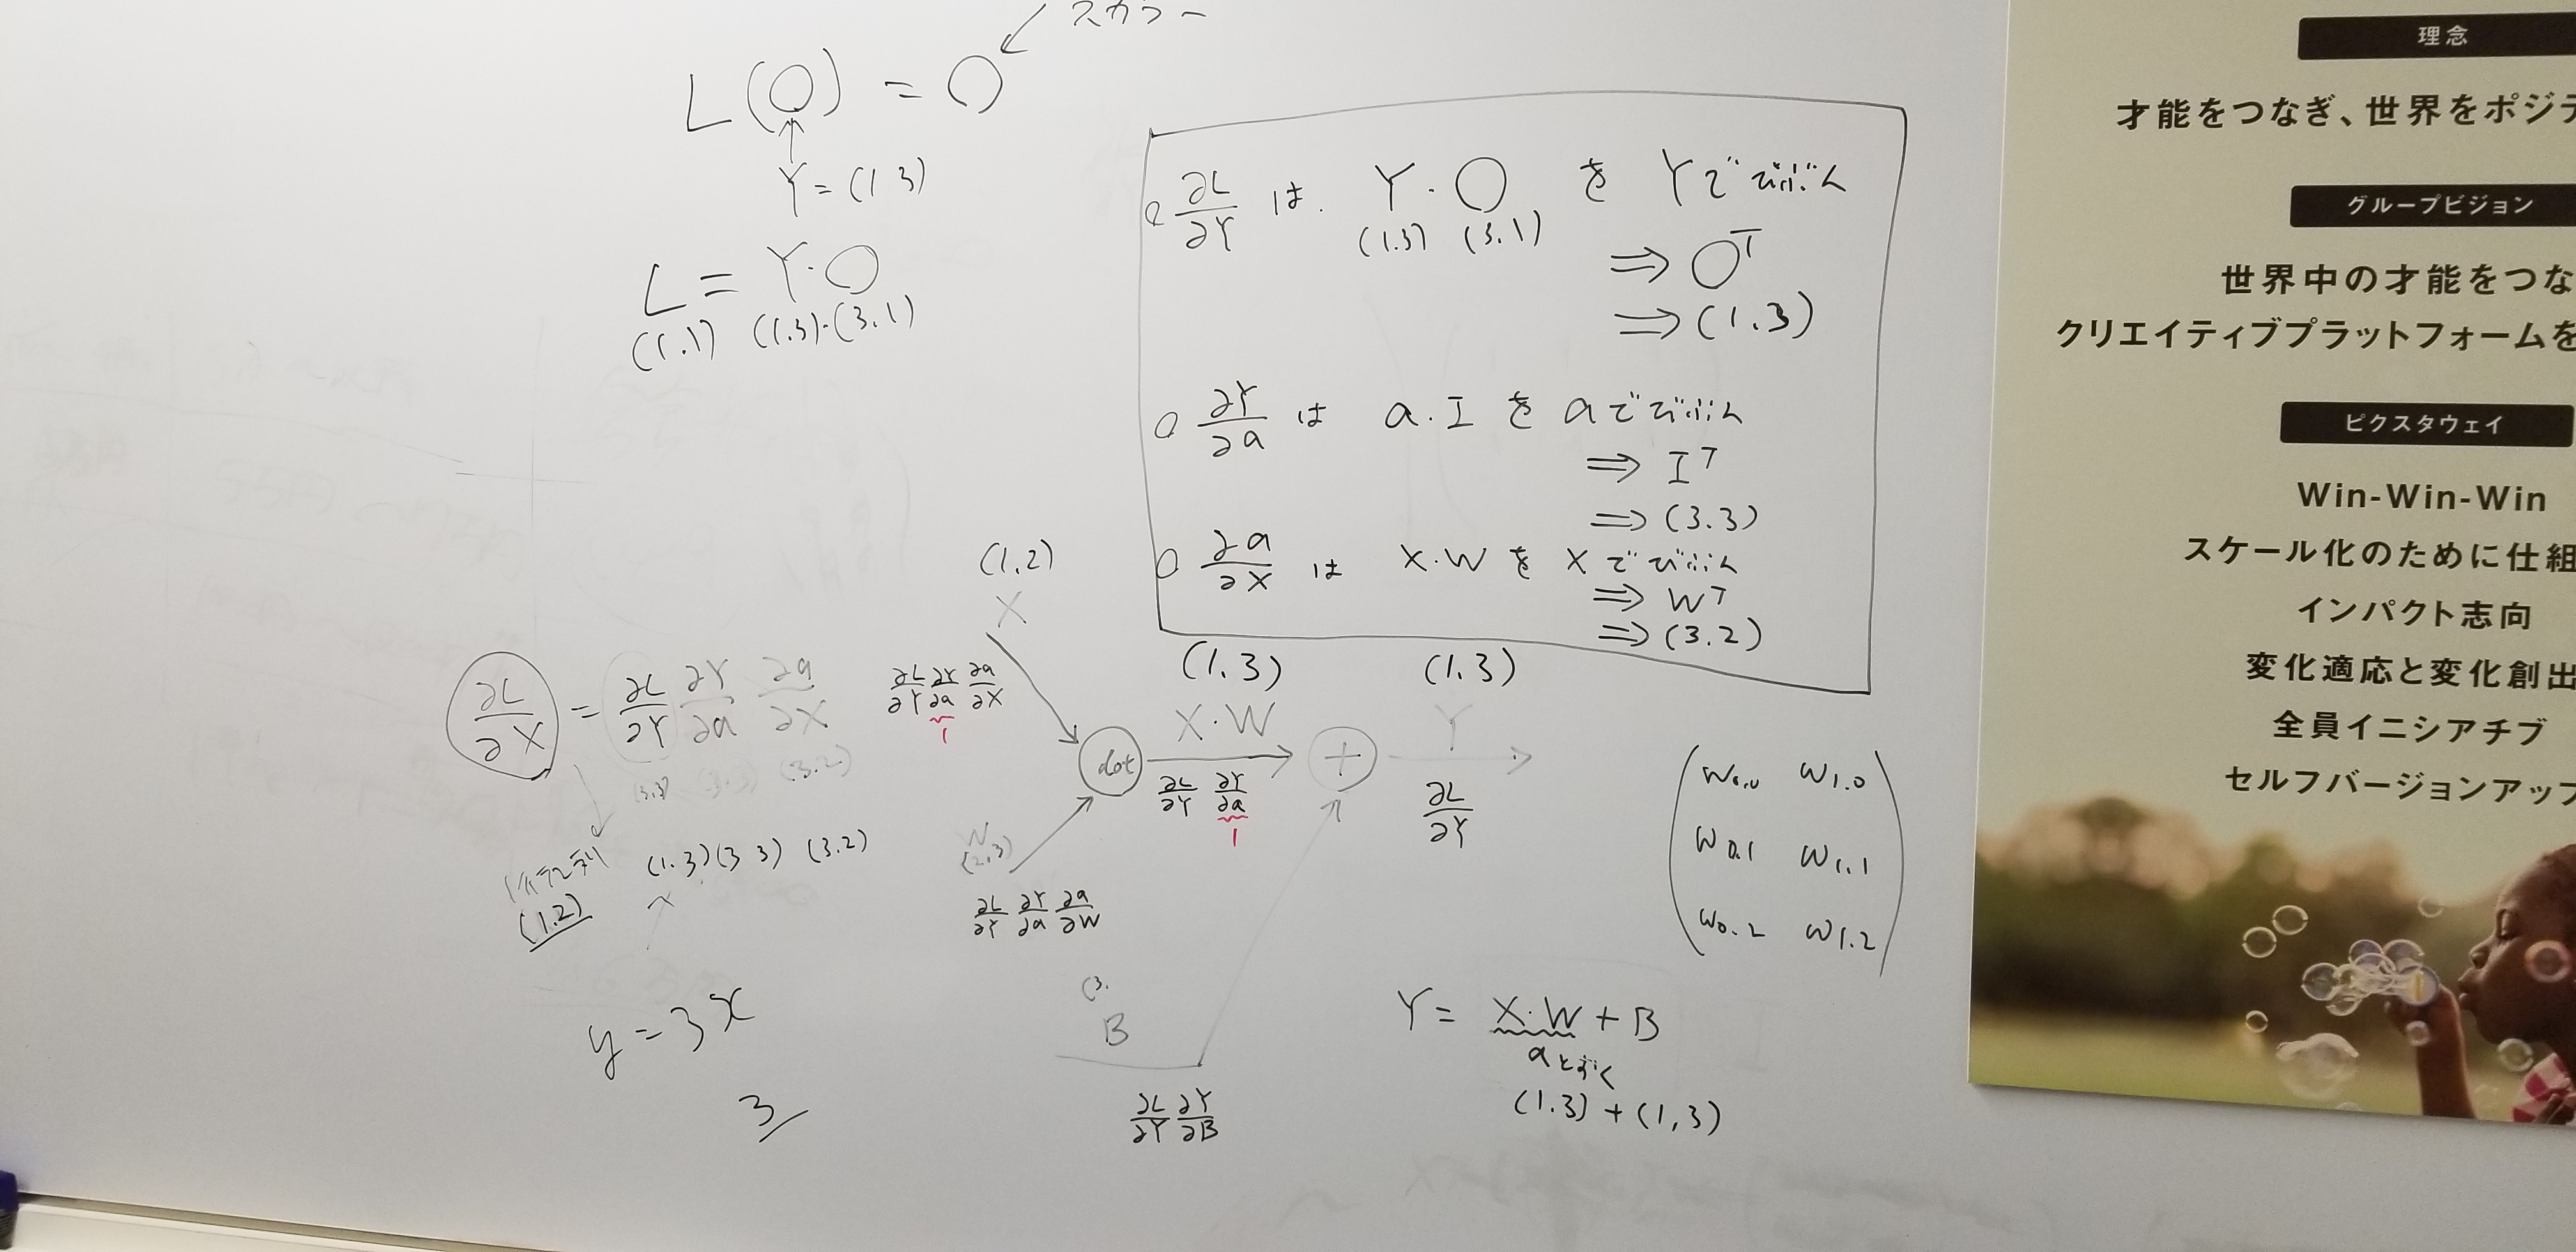 スカラー
L(○) = ○
↑
Y = (1 3)
L = Y・○
(1.1) (1.3)・(3.1)
○ ∂L/∂Y は. Y・○ を Yでびぶん
(1.3) (3.1)
⇒ ○ᵀ
⇒ (1.3)
○ ∂Y/∂a は a.I を aでびぶん
⇒ Iᵀ
⇒ (3.3)
○ ∂a/∂X は X.W を Xでびぶん
⇒ Wᵀ
⇒ (3.2)
(1.2)
X
(1.3)
(1.3)
∂L/∂X = ∂L/∂Y ∂Y/∂a ∂a/∂X
(3.3) (3.2)
∂L/∂Y ∂Y/∂a ∂a/∂X
1
X・W
Y
dot
+
∂L/∂Y ∂Y/∂a
1
∂L/∂Y
W
(2.3)
(1.2)
(1.3)(3 3) (3.2)
∂L/∂Y ∂Y/∂a ∂a/∂W
(3.
B
∂L/∂Y ∂Y/∂B
y = 3x
3
W0.0 W1.0
W0.1 W1.1
W0.2 W1.2
Y = X・W + B
aとおく
(1.3) + (1,3)
理念
才能をつなぎ、世界をポジ
グループビジョン
世界中の才能をつな
クリエイティブプラットフォームを
ピクスタウェイ
Win-Win-Win
スケール化のために仕組
インパクト志向
変化適応と変化創出
全員イニシアチブ
セルフバージョンアップ